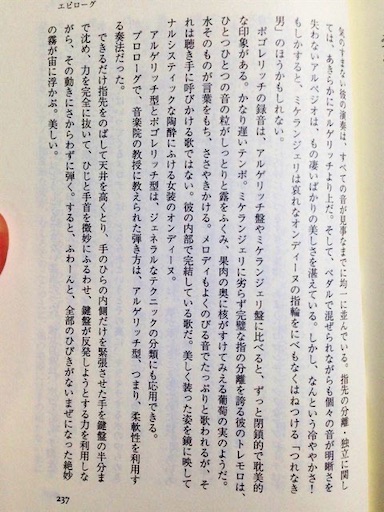 エピローグ
気のすまない彼の演奏は、すべての音が見事なまでに均一に並んでいる。指先の分離・独立に関し
ては、あきらかにアルゲリッチより上だ。そして、ペダルで混ぜられながらも個々の音が明晰さを
失わないアルペジオは、もの凄いばかりの美しさを湛えている。しかし、なんという冷ややかさ!
もしかすると、ミケランジェリは哀れなオンディーヌの指輪をにべもなくはねつける「つれなき
男」のほうかもしれない。
ポゴレリッチの録音は、アルゲリッチ盤やミケランジェリ盤に比べると、ずっと閉鎖的で耽美的
な印象がある。かなり遅いテンポ。ミケランジェリに劣らず完璧な指の分離を誇る彼のトレモロは、
ひとつひとつの音の粒がしっとりと露をふくみ、果肉の奥に核がすけてみえる葡萄の実のようだ。
水そのものが言葉をもち、ささやきかける。メロディもよくのびる音でたっぷりと歌われるが、そ
れは聴き手に呼びかける歌ではない。彼の内部で完結している歌だ。美しく装った姿を鏡に映して
ナルシスティックな陶酔にふける女装のオンディーヌ。
アルゲリッチ型とポゴレリッチ型は、ジェネラルなテクニックの分類にも応用できる。
プロローグで、音楽院の教授に教えられた弾き方は、アルゲリッチ型、つまり、柔軟性を利用す
る奏法だった。
できるだけ指先をのばして天井を高くとり、手のひらの内側だけを緊張させた手を鍵盤の半分ま
で沈め、力を完全に抜いて、ひじと手首を微妙にふるわせ、鍵盤が反発しようとする力を利用しな
がら、その動きにさからわずに弾く。すると、ふわーんと、全部のひびきがないまぜになった絶妙
の霧が宙に浮かぶ。美しい。
237